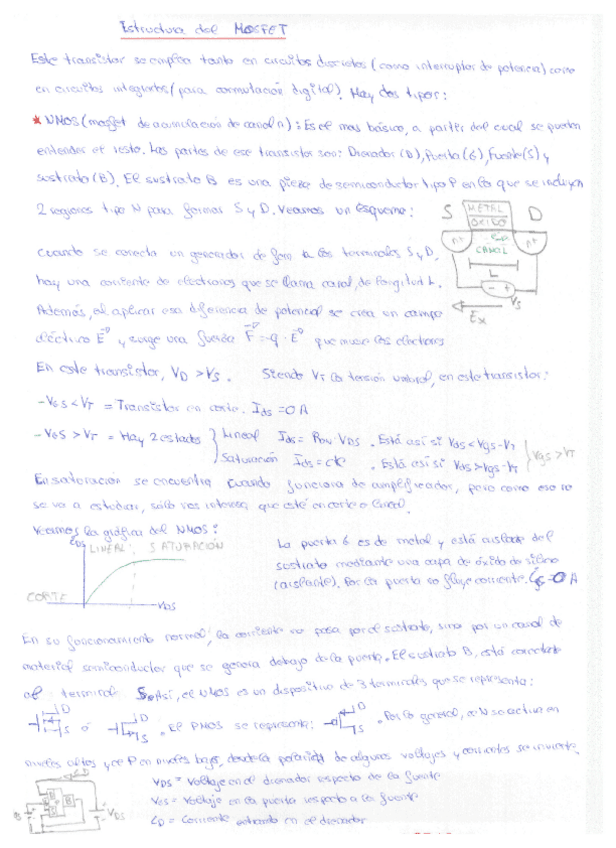 Estructura del MOSFET
Este transistor se emplea tanto en circuitos discretos (como interruptor de potencia) como
en circuitos integrados (para conmutación digital). Hay dos tipos:
* NMOS (mosfet de acumulación de canal n): Es el mas básico, a partir del cual se pueden
entender el resto. Las partes de ese transistor son: Drenador (D), Puerta (G), Fuente (S) y
sustrato (B). El sustrato B es una pieza de semiconductor tipo P en la que se incluyen
2 regiones tipo N para formar S y D. Veamos un esquema:
S METAL D
OXIDO
n+ CANAL n+
L
- +
Vs
Ex
Cuando se conecta un generador de fem a los terminales S y D,
hay una corriente de electrones que se llama canal, de longitud L.
Además, al aplicar esa diferencia de potencial se crea un campo
eléctrico E y surge una fuerza F = -q · E que mueve los electrones
En este transistor, VD > VS. Siendo VT la tensión umbral, en este transistor:
- VGS < VT = Transistor en corte. Ids = 0 A
- VGS > VT = Hay 2 estados } Lineal Ids = VDS. Está así si Vds < Vgs - VT } Vgs > VT
Saturación Ids = cte. Está así si Vds > Vgs - VT
En saturación se encuentra cuando funciona de amplificador, pero como eso no
se va a estudiar, sólo nos interesa que esté en corte o lineal.
Veamos la gráfica del NMOS:
iDS LINEAL SATURACIÓN
CORTE
VDS
La puerta G es de metal y está aislada del
sustrato mediante una capa de óxido de silicio
(aislante). Por la puerta no fluye corriente. iG = 0 A
En su funcionamiento normal, la corriente no pasa por el sustrato, sino por un canal de
material semiconductor que se genera debajo de la puerta. El sustrato B, está conectado
al terminal S. Así, el NMOS es un dispositivo de 3 terminales que se representa:
D S ó D S. El PMOS se representa: D S. Por lo general, el N se activa en
niveles altos y el P en niveles bajos, donde la de algunos voltajes y corrientes se invierte.
VDS = Voltaje en el drenador respecto de la fuente
VGS = Voltaje en la puerta respecto a la fuente
iD = Corriente entrando en el drenador
VDS